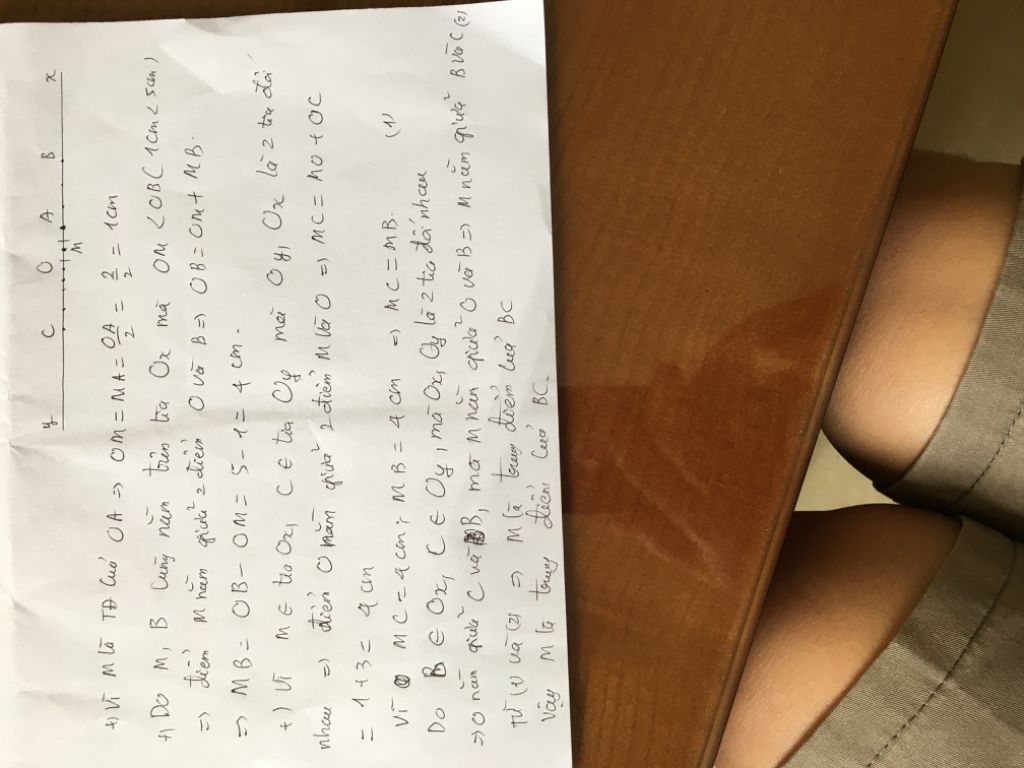 y C O M A B x
+) Vì M là TĐ của OA => OM = MA = OA/2 = 2/2 = 1cm
+) Do M, B cùng nằm trên tia Ox mà OM < OB (1cm < 5cm)
=> điểm M nằm giữa 2 điểm O và B => OB = OM + MB.
=> MB = OB - OM = 5 - 1 = 4 cm.
+) Vì M ∈ tia Ox, C ∈ tia Oy mà Oy, Ox là 2 tia đối
nhau => điểm O nằm giữa 2 điểm M và O => MC = MO + OC
= 1 + 3 = 4 cm
Vì MC = 4 cm; MB = 4 cm => MC = MB. (1)
Do B ∈ Ox, C ∈ Oy, mà Ox, Oy là 2 tia đối nhau
=> O nằm giữa C và B, mà M nằm giữa O và B => M nằm giữa B và C (2)
Từ (1) và (2) => M là trung điểm của BC
Vậy M là trung điểm của BC.